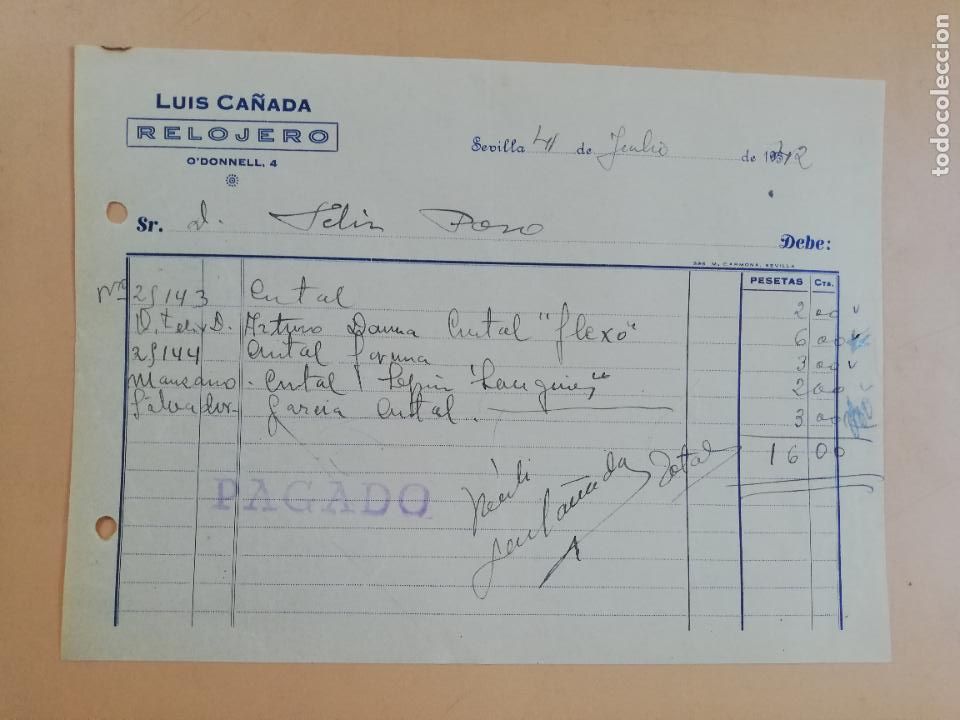 LUIS CAÑADA
RELOJERO
O'DONNELL, 4
Sevilla de Julio de 1942
Sr. D. Félix Pozo
Debe:
M. CARMONA, SEVILLA
PESETAS Cts.
Nº 25143 Cristal 2 00
Arturo Cristal "flexo" 6 00
25144 Cristal forma 3 00
Manzano. Cristal Pepín "Longines" 2 00
Salvador García Cristal. 3 00
Total 16 00
PAGADO
Recibí
Cañada
todocoleccion